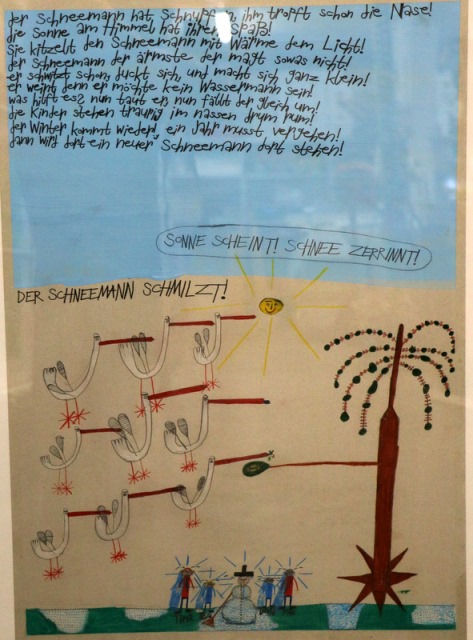 der Schneemann hat Schnupfen, ihm tropft schon die Nase!
die Sonne am Himmel hat ihren Spaß!
Sie kitzelt den Schneemann mit Wärme dem Licht!
der Schneemann der ärmste der magt sowas nicht!
er schwitzt schon, duckt sich, und macht sich ganz klein!
er weint denn er möchte kein Wassermann sein!
was hilft es? nun taut er, nun fällt der gleich um!
die Kinder stehen traurig im nassen drum rum!
der Winter kommt wieder! ein Jahr musst vergehen!
dann wird dort ein neuer Schneemann dort stehen!
SONNE SCHEINT! SCHNEE ZERRINNT!
DER SCHNEEMANN SCHMILZT!